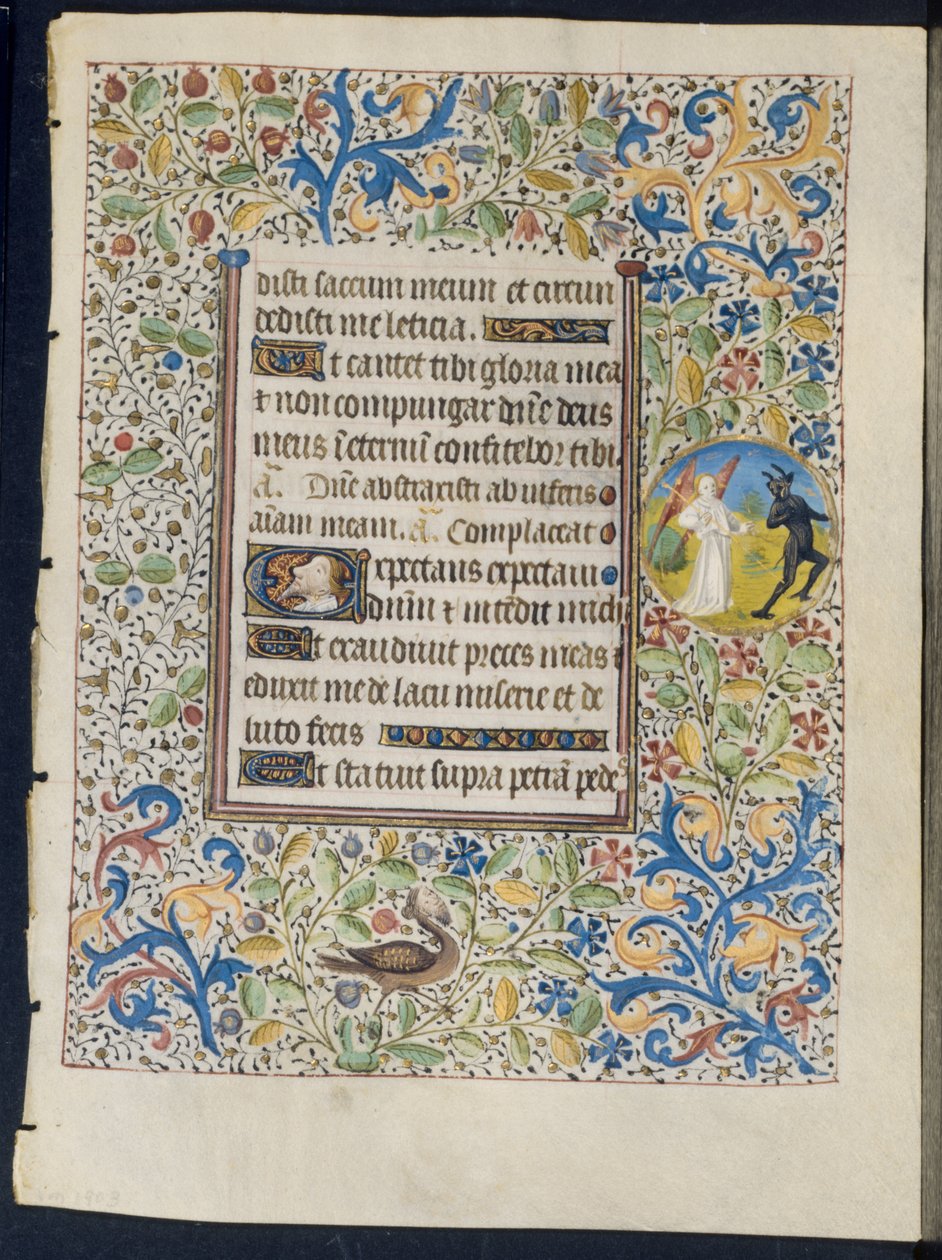 disti saccum meum et circun
dedisti me leticia.
Ut cantet tibi gloria mea
⁊ non compungar dn̄e deus
meus ī eternū confitebor tibi.
Añ. Dn̄e abstraxisti ab inferis
aīam meam. Añ. Complaceat
Expectans expectaui
dnūm ⁊ intēdit michi
Et exaudiuit preces meas ⁊
eduxit me de lacu miserie et de
luto fecis
Et statuit supra petrā pedes